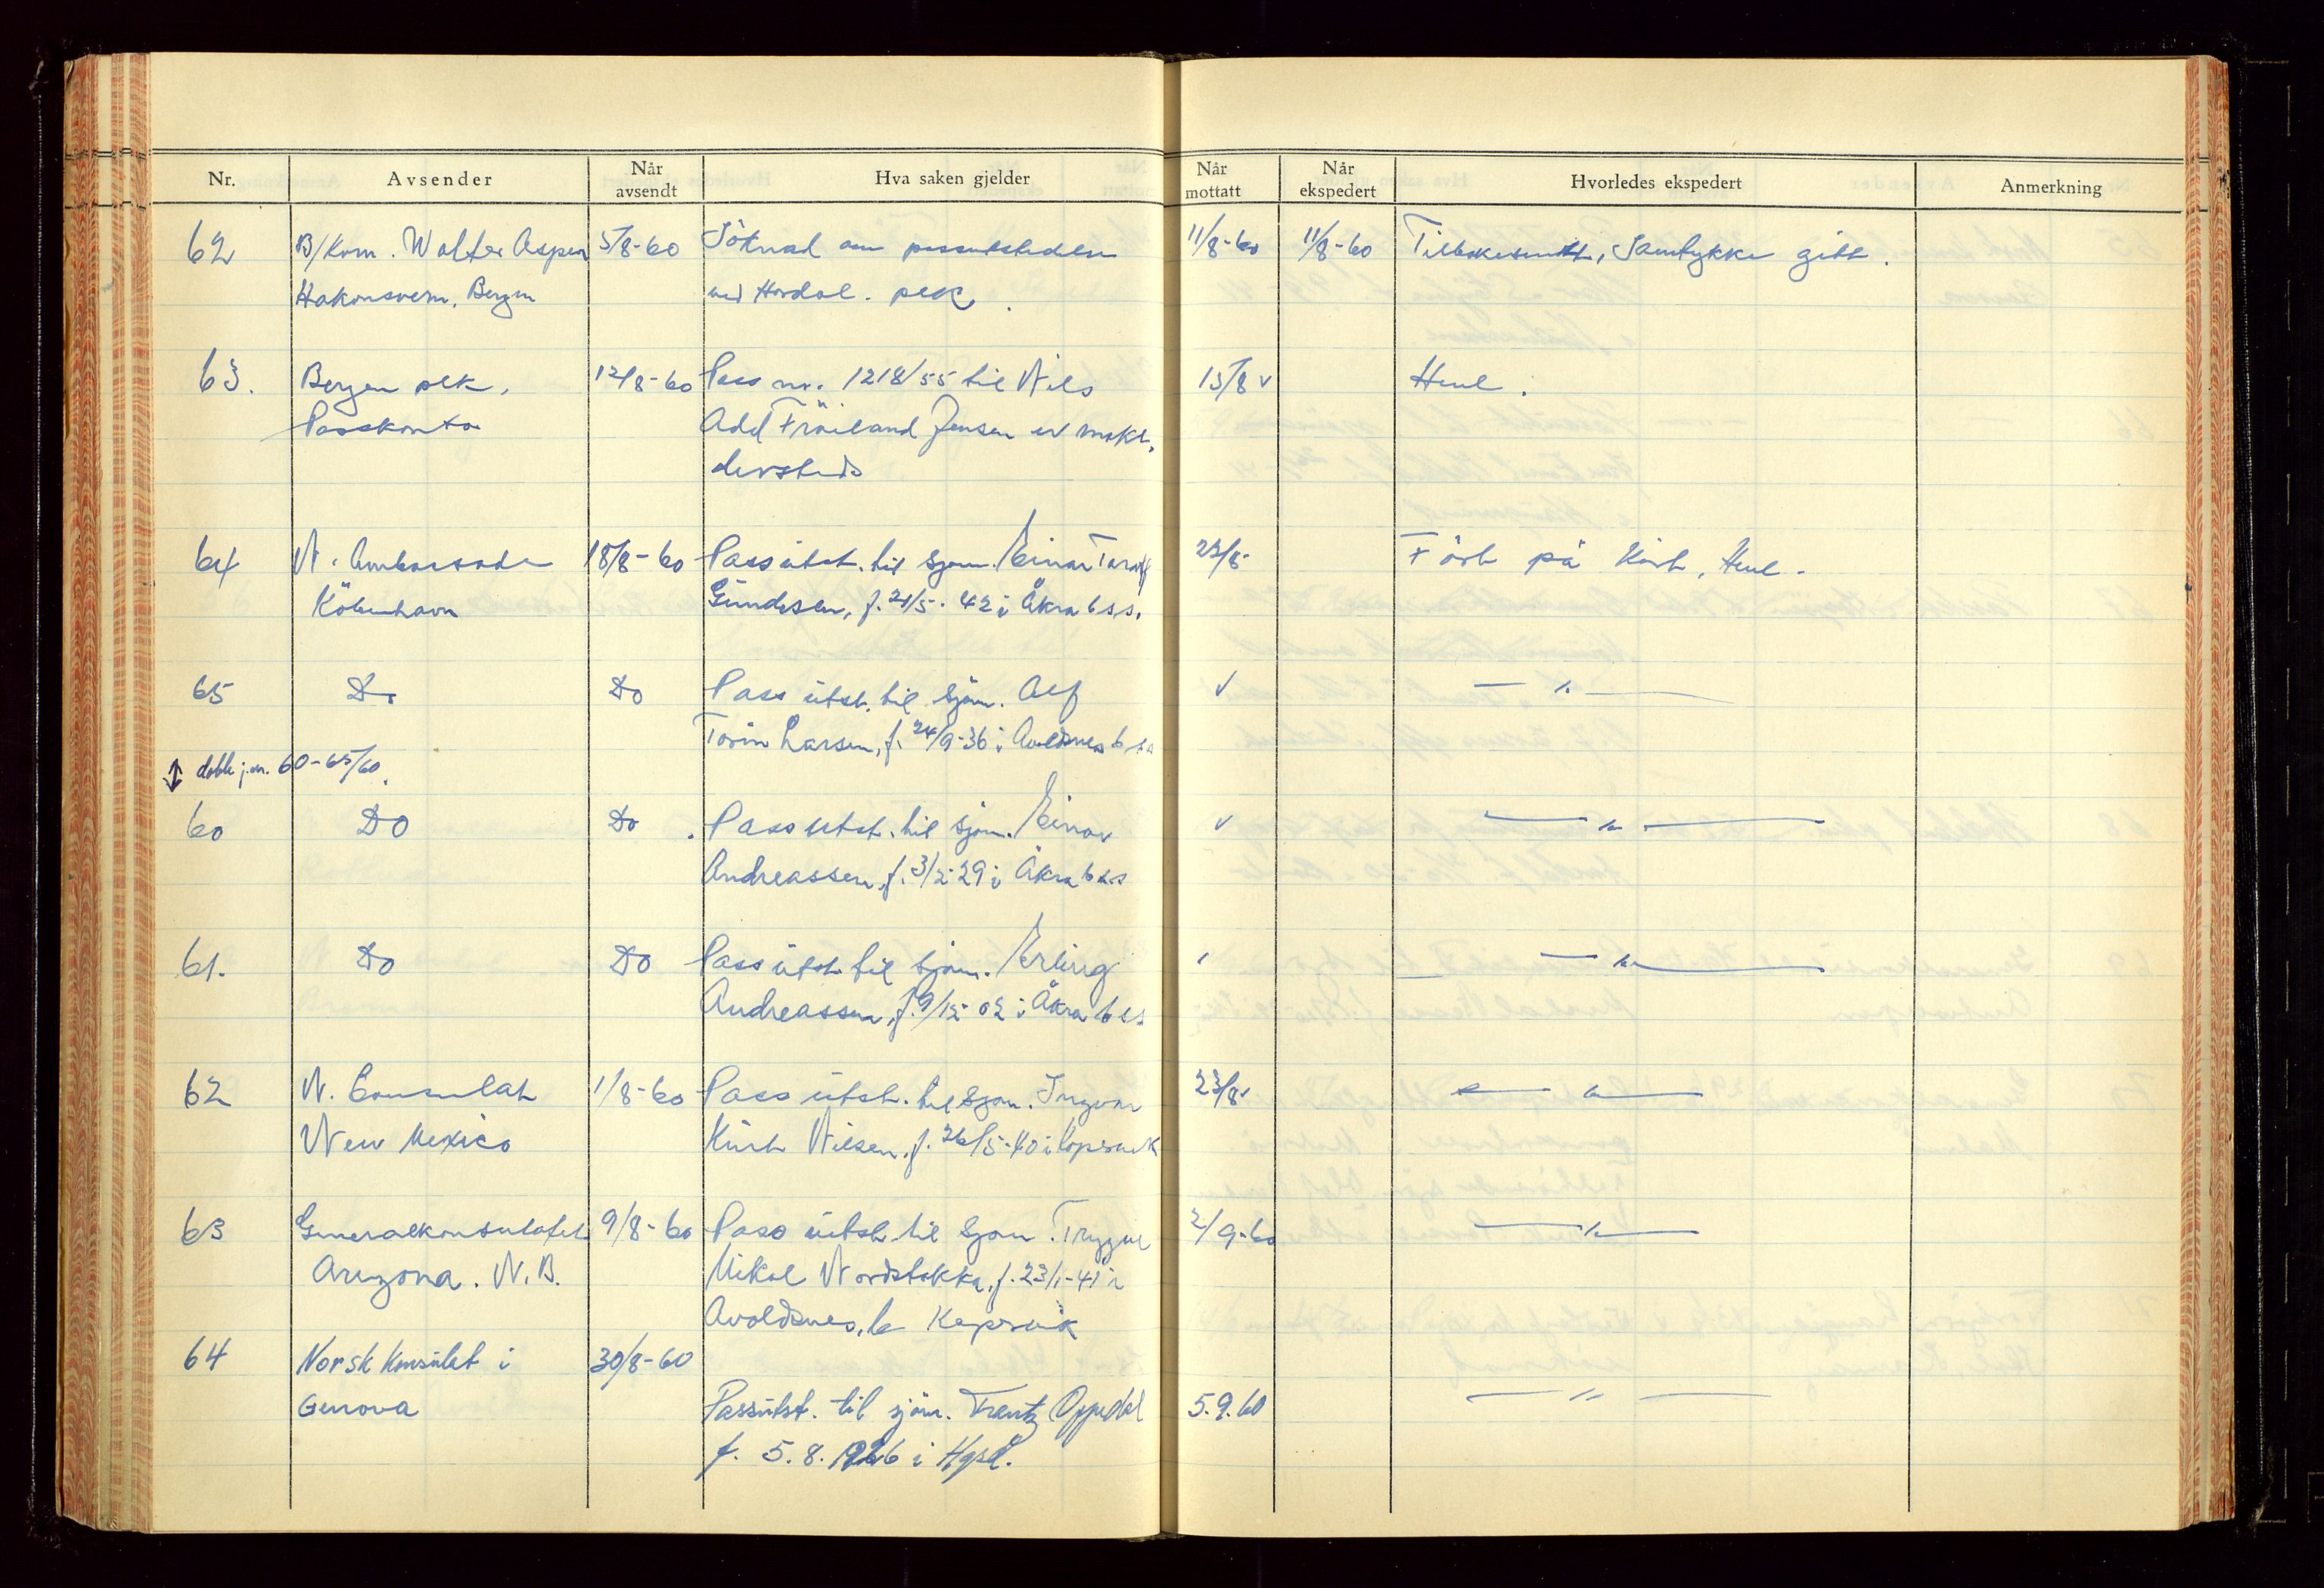 Nr. Avsender Når avsendt Hva saken gjelder Når mottatt Når ekspedert Hvorledes ekspedert Anmerkning
62 B/Kom. Walter Aspen 5/8-60 Söknad om passutstedelse 11/8-60 11/8-60 Tilbakesendt, Samtykke gitt.
Hakonsvern, Bergen ved Hordal. pck.
63. Bergen pck, 12/8-60 Pass nr. 1218/55 til Nils 15/8 v Henl.
Passkontor Adel Fröiland Jensen er makl.
dersteds
64 N. Ambassade 18/8-60 Pass utst. til sjøm. Einar 23/8- Fört på Kort, Henl.
Köbenhavn Gundersen, f. 21/5-42 i Åkra bss.
65 Do Do Pass utst. til sjöm. Alf v — " —
Torin Larsen, f. 24/9-36 i Avaldsnes b
↕ doble j.nr. 60-65/60.
60 Do Do Pass utst. til sjöm. Einar v — " —
Andreassen, f. 3/2-29 i Åkra bss
61. Do Do Pass utst. til sjöm. Erling — " —
Andreassen, f. 9/12-02 i Åkra bss
62 N. Consulat 1/8-60 Pass utst. til sjöm. Ingvar 23/8v — " —
New Mexico Kurt Nilsen, f. 26/5-40 i Kopervik
63 Generalkonsulatet 9/8-60 Pass utst. til sjöm. Trygve 2/9-60 — " —
Arizona. N.B. Mikal Nordstokke, f. 23/1-41 i
Avaldsnes, b Kopervik
64 Norsk Konsulat i 30/8-60
Genova Passutst. til sjöm. Frantz Oppedal 5.9.60 — " —
f. 5.8.1926 i Hgsd.